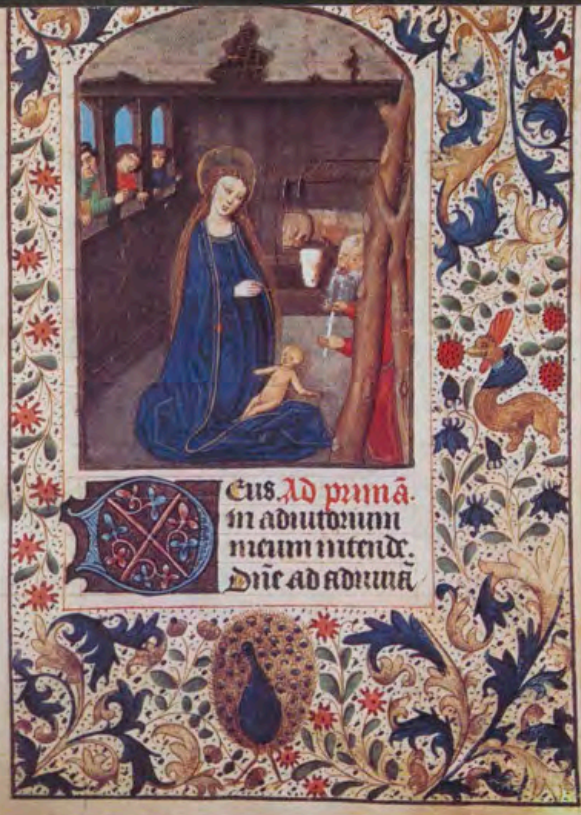 Deus. Ad primā.
in adiutorium
meum intende.
Dn̄e ad adiuuā